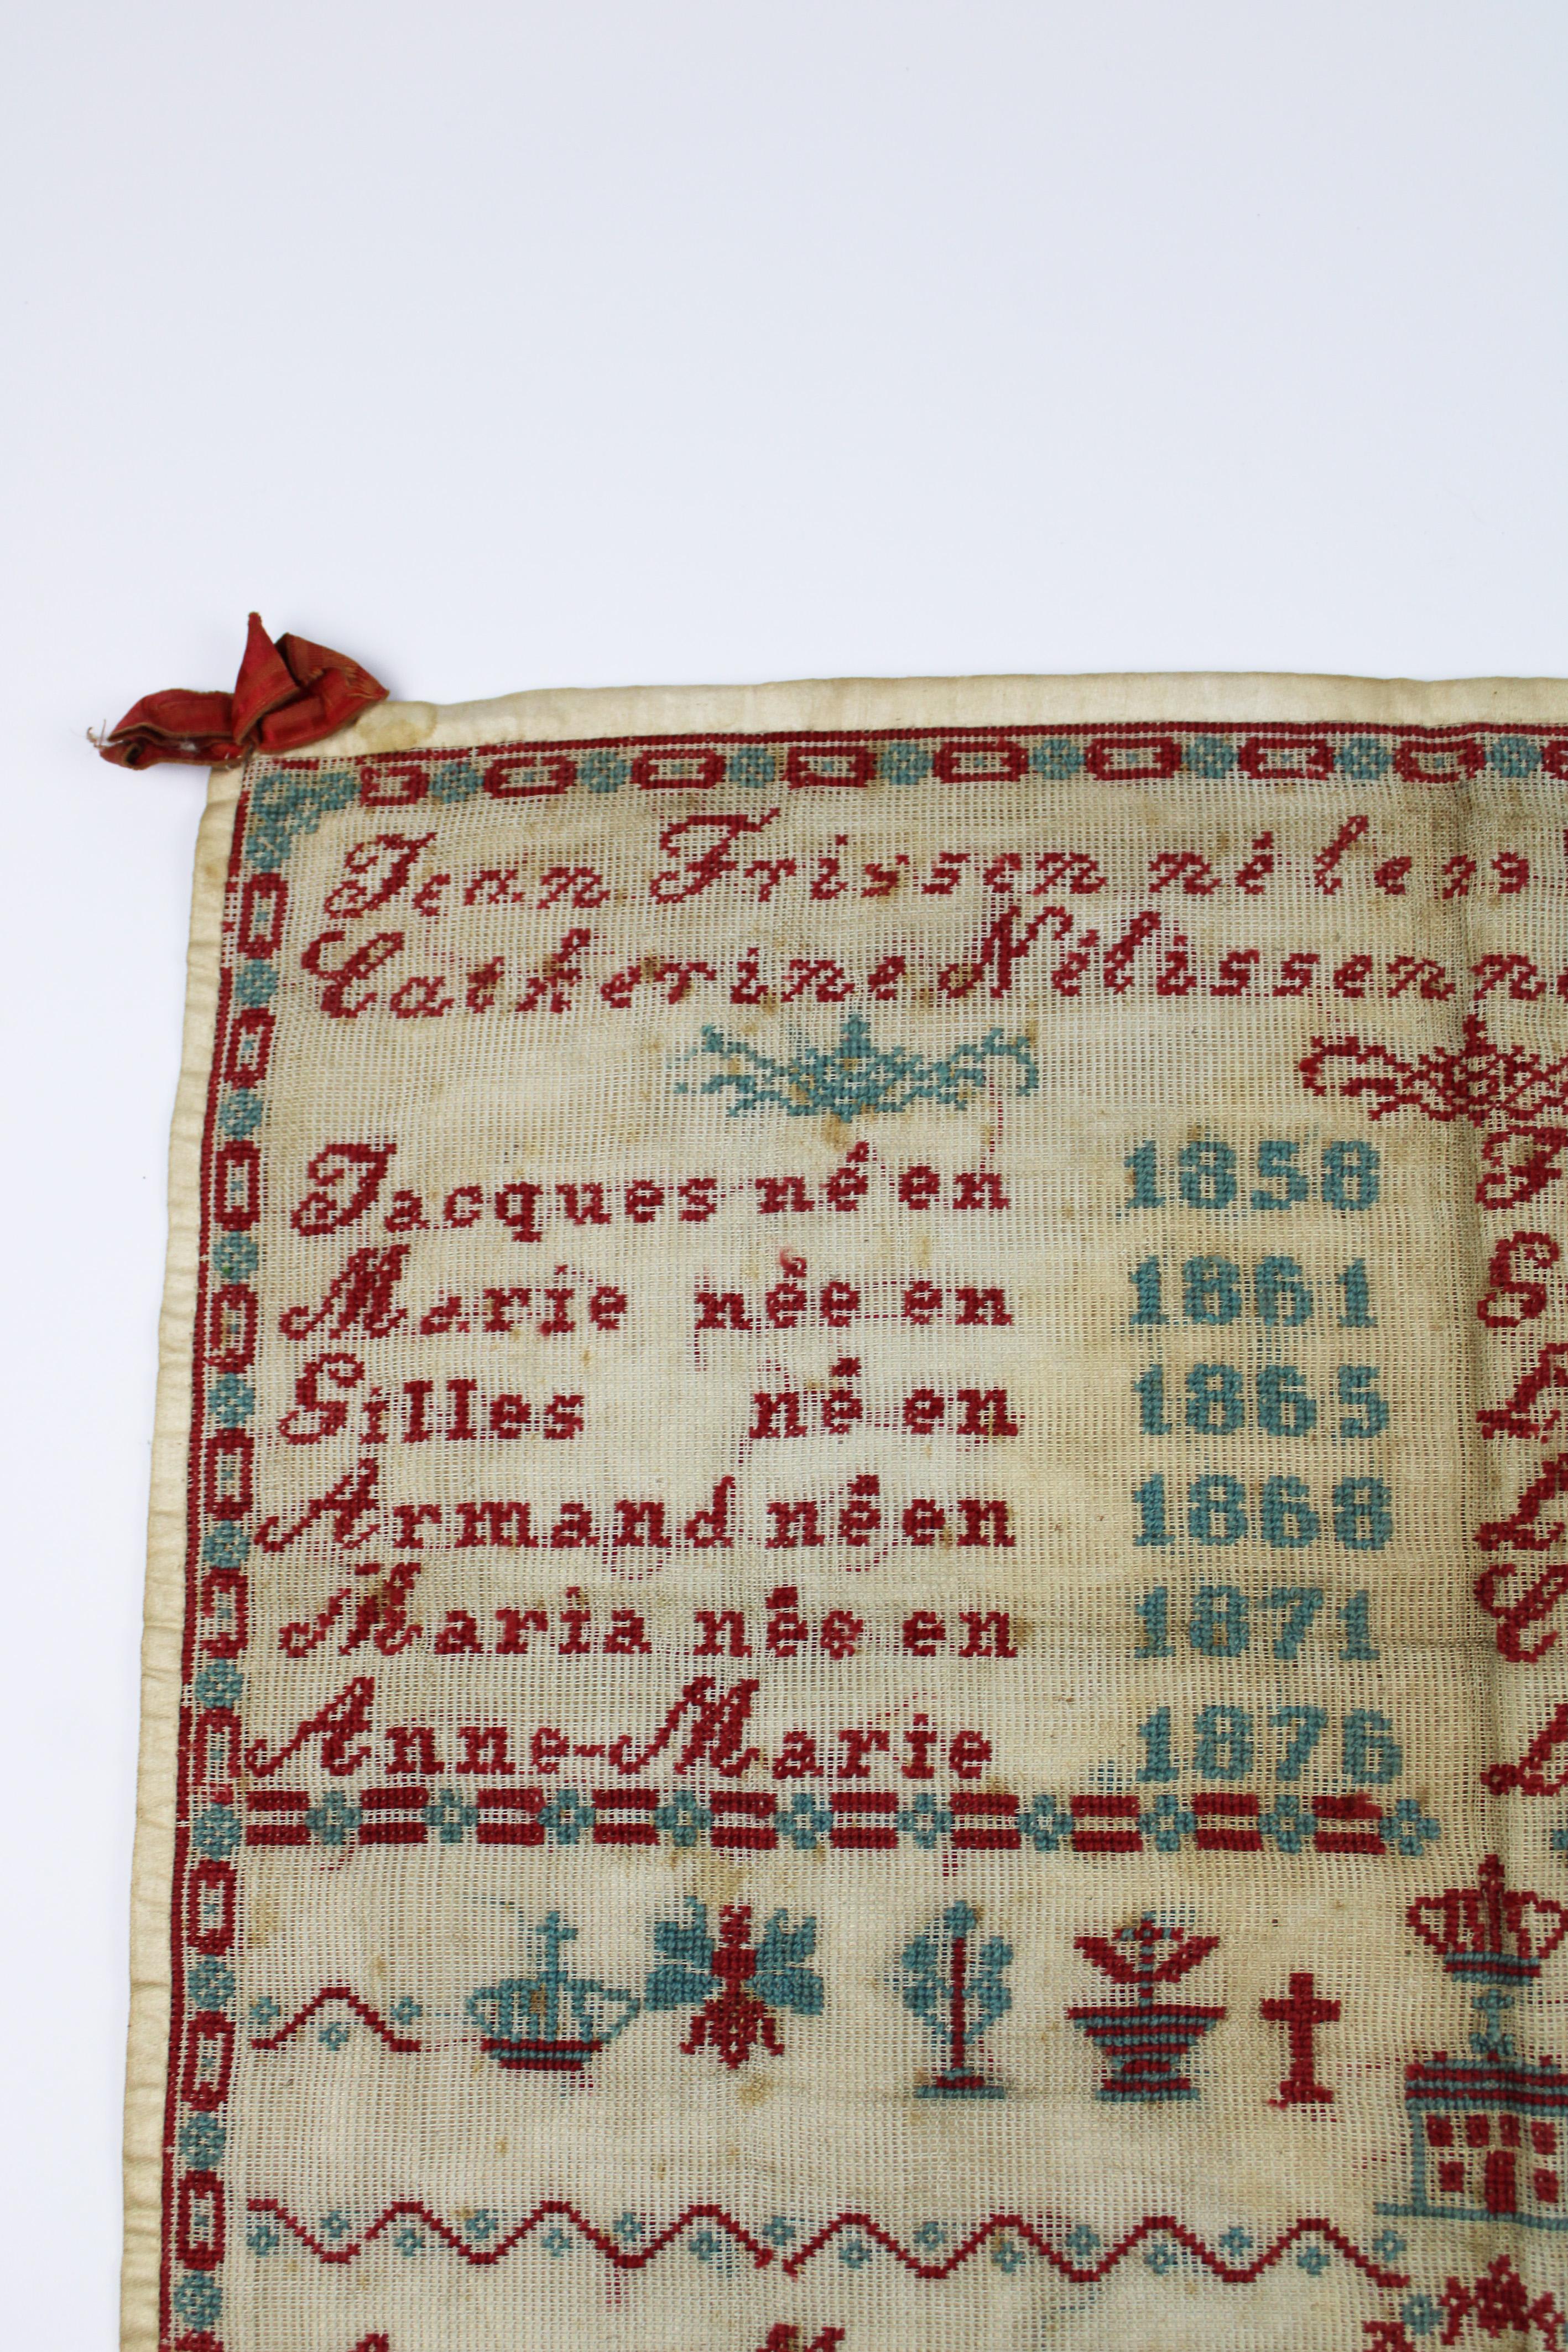 Jean Frissen né le
Catherine Nélissen
Jacques né en 1858
Marie née en 1861
Gilles né en 1865
Armand né en 1868
Maria née en 1871
Anne-Marie 1876